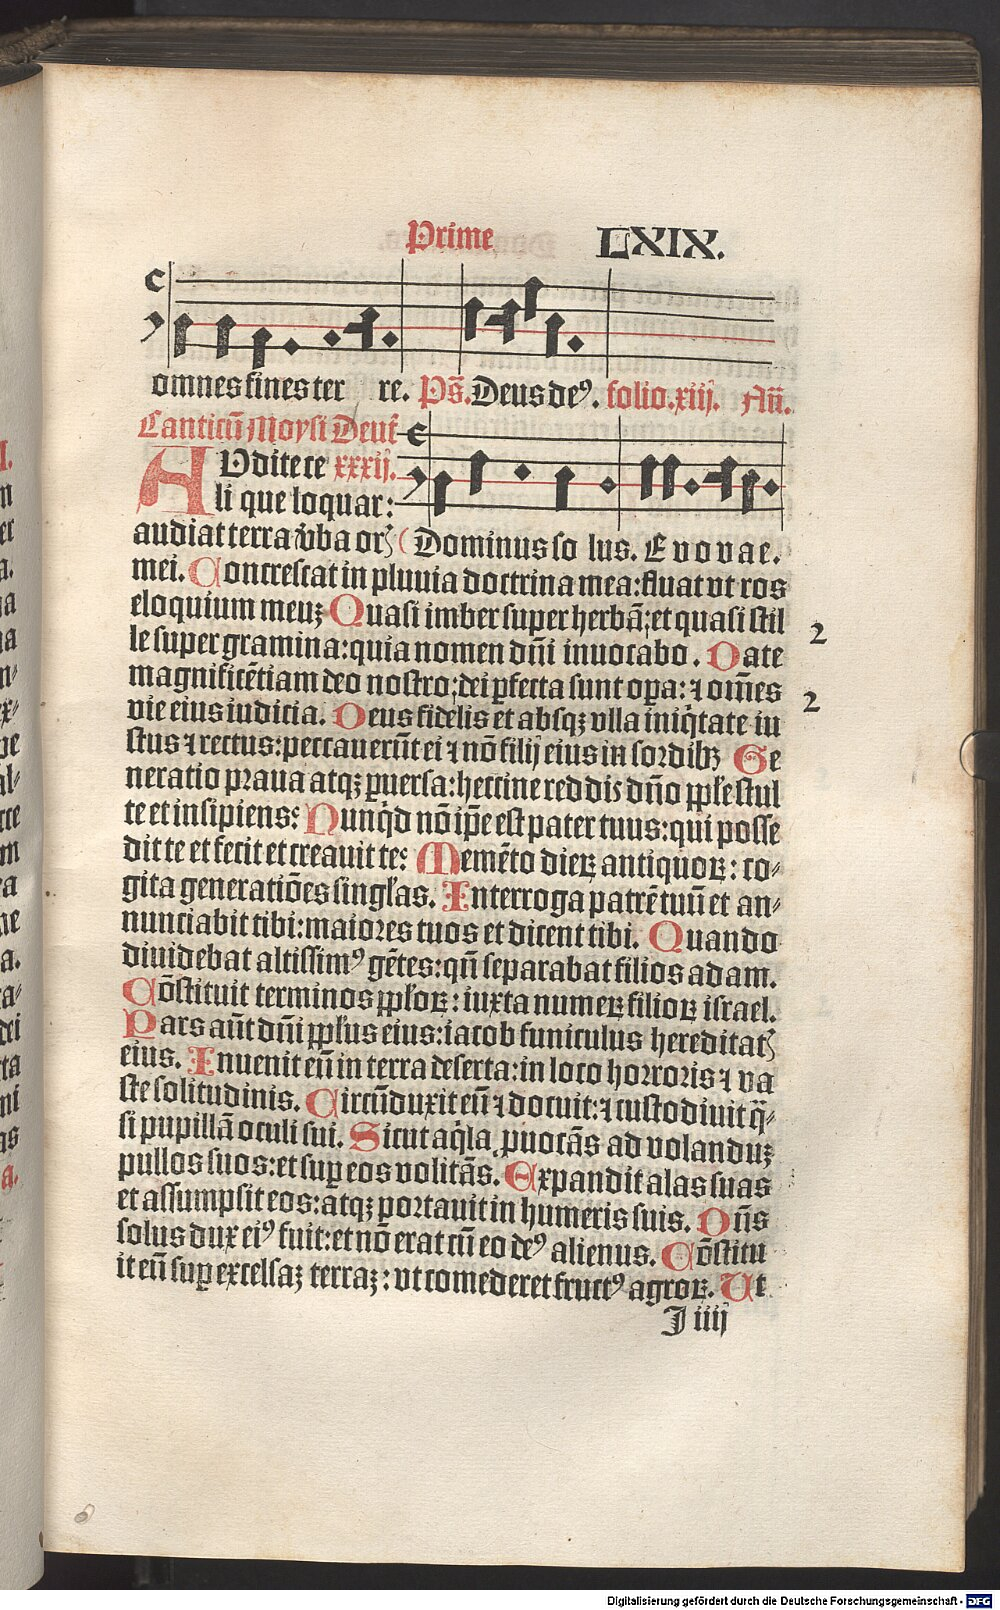 Prime LXIX.
omnes fines ter re. Ps̄. Deus deꝰ. folio. xiij. An̄.
Canticū Moysi Deut̄
AUdite ce xxxij.
li que loquar:
audiat terra v̄ba orꝭ ( Dominus so lus. E v o v a e.
mei. Concrescat in pluuia doctrina mea: fluat vt ros
eloquium meuꝫ Quasi imber super herbā: et quasi stil
le super gramina: quia nomen dn̄i inuocabo. Date
magnificētiam deo nostro: dei ꝑfecta sunt oꝑa: ⁊ om̄es
vie eius iudicia. Deus fidelis et absqꝫ vlla iniq̇tate iu
stus ⁊ rectus: peccauerūt ei ⁊ nō filij eius in sordibꝫ Ge
neratio praua atqꝫ ꝑuersa: heccine red dis dn̄o pp̄le stul
te et insipiens: Nunq̇d nō ip̄e est pater tuus: qui posse
dit te et fecit et creauit te: Memēto dieꝝ antiquoꝝ: co⸗
gita generatiōes singl̄as. Interroga patrē tuū et an⸗
nunciabit tibi: maiores tuos et dicent tibi. Quando
diuidebat altissimꝰ gētes: qn̄ separabat filios adam.
Cōstituit terminos pp̄loꝝ: iuxta numeꝝ filioꝝ israel.
Pars aūt dn̄i pp̄lus eius: iacob funiculus hereditatꝭ
eius. Inuenit eū in terra deserta: in loco horroris ⁊ va
ste solitudinis. Circūduxit eū ⁊ docuit: ⁊ custodiuit q̄⸗
si pupillā oculi sui. Sicut aq̇la ꝓuocās ad volanduꝫ
pullos suos: et suꝑ eos volitās. Expandit alas suas
et assumpsit eos: atqꝫ portauit in humeris suis. Dn̄s
solus dux eiꝰ fuit: et nō erat cū eo deꝰ alienus. Cōstitu
it eū suꝑ excelsaꝫ terraꝫ: vt comederet fructꝰ agroꝝ. Ut
J iiij
2
2
Digitalisierung gefördert durch die Deutsche Forschungsgemeinschaft - DFG